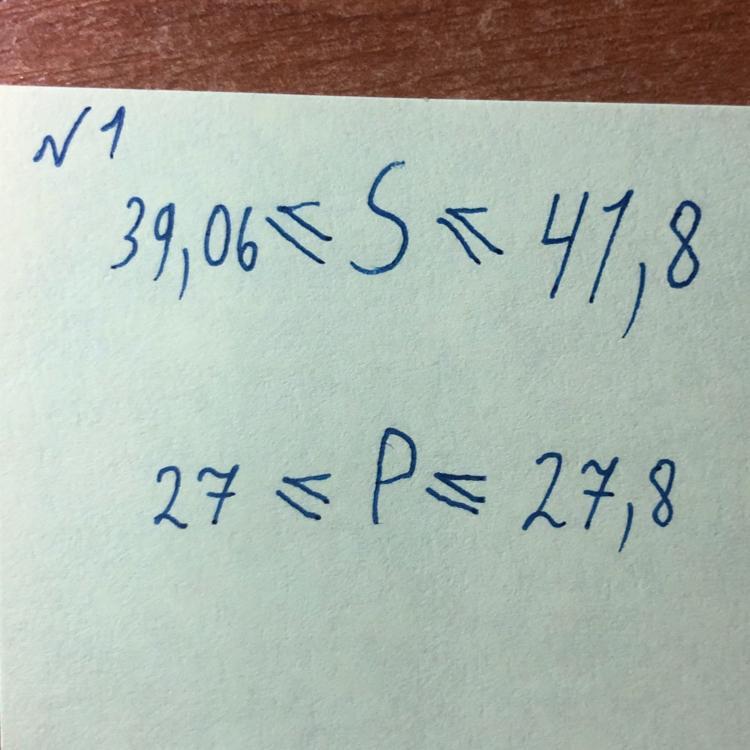 №1
39,06 ≤ S ≤ 41,8
27 ≤ P ≤ 27,8